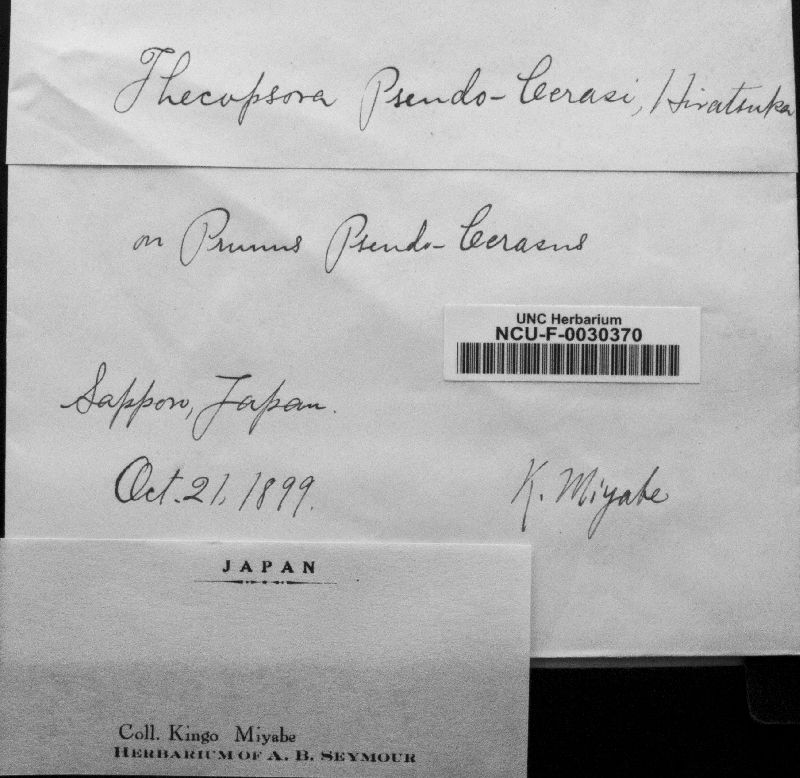 Thecopsora Pseudo-Cerasi, Hiratsuka
on Prunus Pseudo-Cerasus
UNC Herbarium
NCU-F-0030370
Sapporo, Japan.
Oct. 21, 1899.
K. Miyabe
JAPAN
Coll. Kingo Miyabe
HERBARIUM OF A. B. SEYMOUR